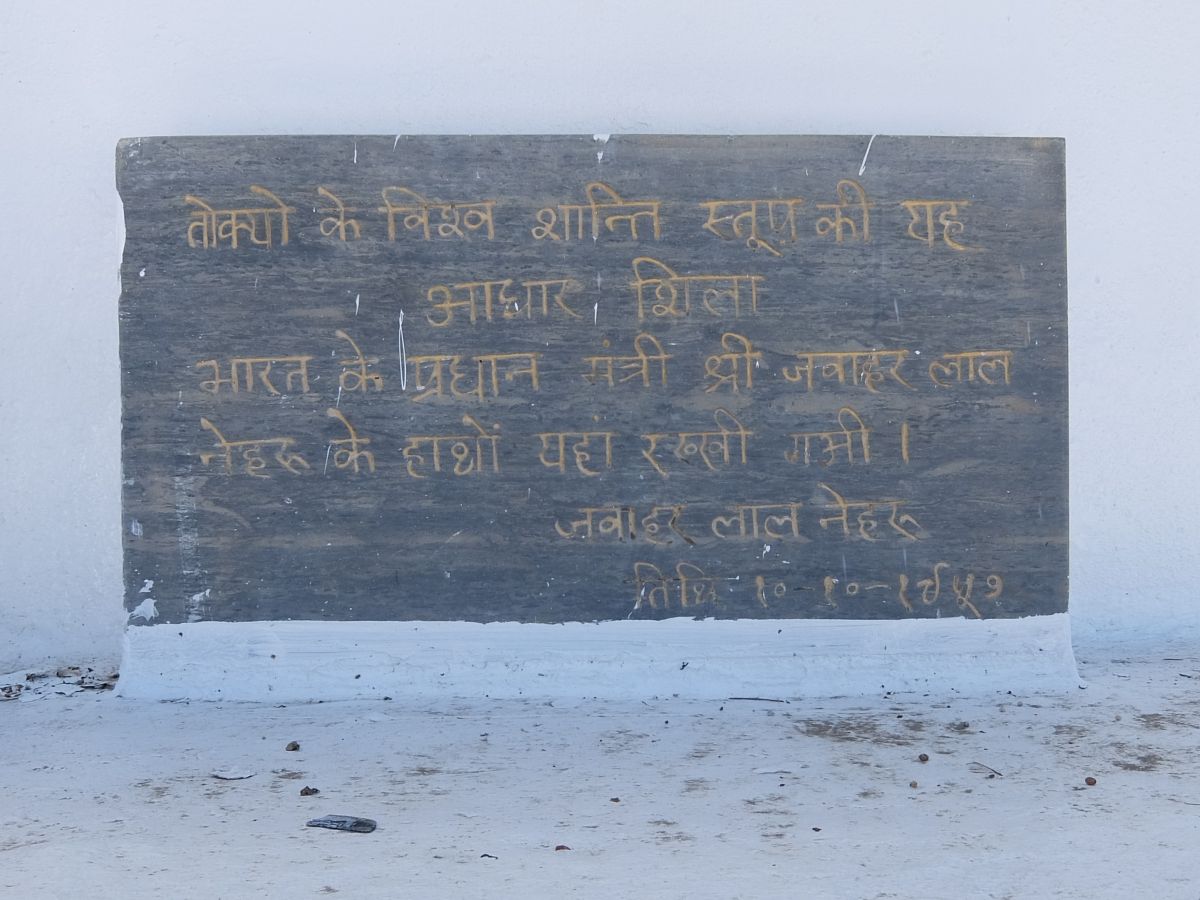 तोक्यो के विश्व शान्ति स्तूप की यह
आधार शिला
भारत के प्रधान मंत्री श्री जवाहर लाल
नेहरू के हाथों यहां रख्खी गयी ।
जवाहर लाल नेहरू
तिथि १०-१०-१९५७